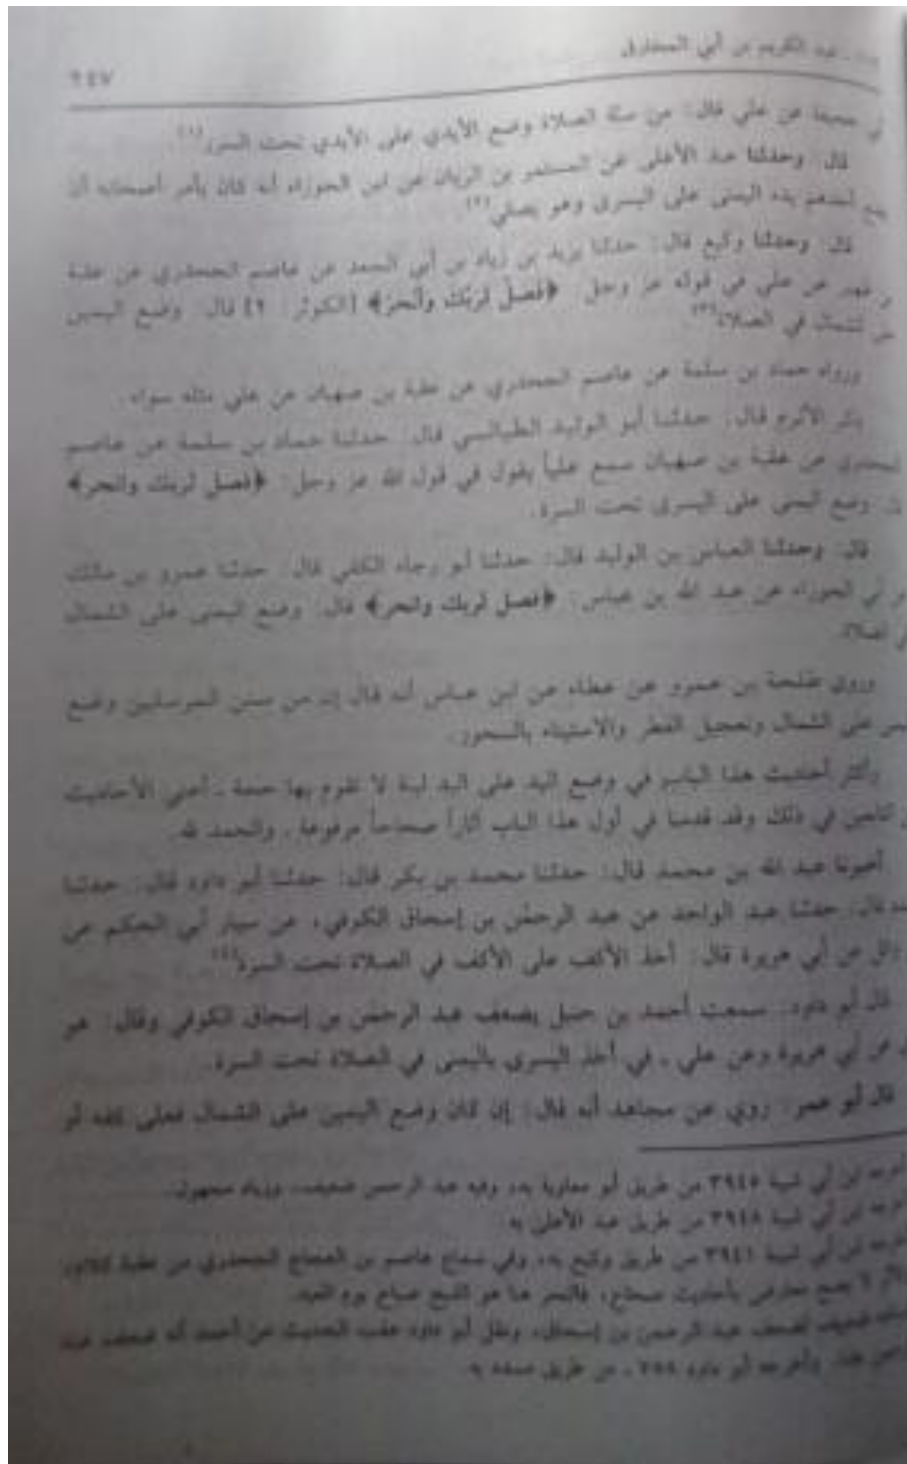 عبد الكريم بن أبي المخارق
٦٤٧
عن علي قال: من سنة الصلاة وضع الأيدي على الأيدي تحت السرر(١).
قال: وحدثنا عبد الأعلى عن المستمر بن الريان عن أبي الجوزاء أنه كان يأمر أصحابه أن
يضع أحدهم يده اليمنى على اليسرى وهو يصلي(٢).
قال: وحدثنا وكيع قال: حدثنا يزيد بن زياد بن أبي الجعد عن عاصم الجحدري عن عقبة
ظهير عن علي في قوله عز وجل: ﴿فصل لربك وانحر﴾ [الكوثر: ٢] قال: وضع اليمين
الشمال في الصلاة(٣).
ورواه حماد بن سلمة عن عاصم الجحدري عن عقبة بن صهبان عن علي مثله سواء.
ذكر الأثرم قال: حدثنا أبو الوليد الطيالسي قال: حدثنا حماد بن سلمة عن عاصم
الجحدري عن عقبة بن صهبان سمع علياً يقول في قول الله عز وجل: ﴿فصل لربك وانحر﴾
وضع اليمنى على اليسرى تحت السرة.
قال: وحدثنا العباس بن الوليد قال: حدثنا أبو رجاء الكلبي قال: حدثنا عمرو بن مالك
أبي الجوزاء عن عبد الله بن عباس: ﴿فصل لربك وانحر﴾ قال: وضع اليمنى على الشمال
الصلاة.
وروى طلحة بن عمرو عن عطاء عن ابن عباس أنه قال إن من سنن المرسلين وضع
على الشمال وتعجيل الفطر والاستيناء بالسحور.
وأكثر أحاديث هذا الباب في وضع اليد على اليد لينة لا تقوم بها حجة ـ أعني الأحاديث
التابعين في ذلك وقد قدمنا في أول هذا الباب آثاراً صحاحاً مرفوعة ـ والحمد لله.
أخبرنا عبد الله بن محمد قال: حدثنا محمد بن بكر قال: حدثنا أبو داود قال: حدثنا
قال: حدثنا عبد الواحد عن عبد الرحمٰن بن إسحاق الكوفي، عن سيار أبي الحكم عن
وائل عن أبي هريرة قال: أخذ الأكف على الأكف في الصلاة تحت السرة(٤).
قال أبو داود: سمعت أحمد بن حنبل يضعف عبد الرحمٰن بن إسحاق الكوفي وقال: هو
عن أبي هريرة وعن علي ـ في أخذ اليسرى باليمنى في الصلاة تحت السرة.
قال أبو عمر: روي عن مجاهد أنه قال: إن كان وضع اليمين على الشمال فعلى كفه أو
ابن أبي شيبة ٣٩٤٥ من طريق أبو معاوية به، وفيه عبد الرحمن ضعيف، وزياد مجهول.
ابن أبي شيبة ٣٩٤٨ من طريق عبد الأعلى به.
ابن أبي شيبة ٣٩٤١ من طريق وكيع به، وفي سماع عاصم بن العجاج الجحدري من عقبة كلام،
بأحاديث صحاح، فالنحر هنا هو الذبح صباح يوم العيد.
ضعيف لضعف عبد الرحمن بن إسحاق، ونقل أبو داود عقب الحديث عن أحمد أنه ضعف عبد
وأخرجه أبو داود ٧٥٨ ـ من طريق مسدد به.